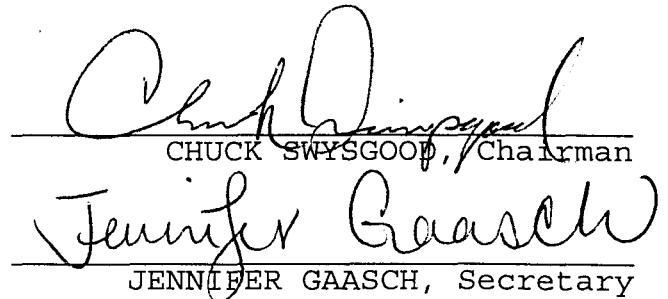 Chuck Swysgood
CHUCK SWYSGOOD, Chairman
Jennifer Gaasch
JENNIFER GAASCH, Secretary